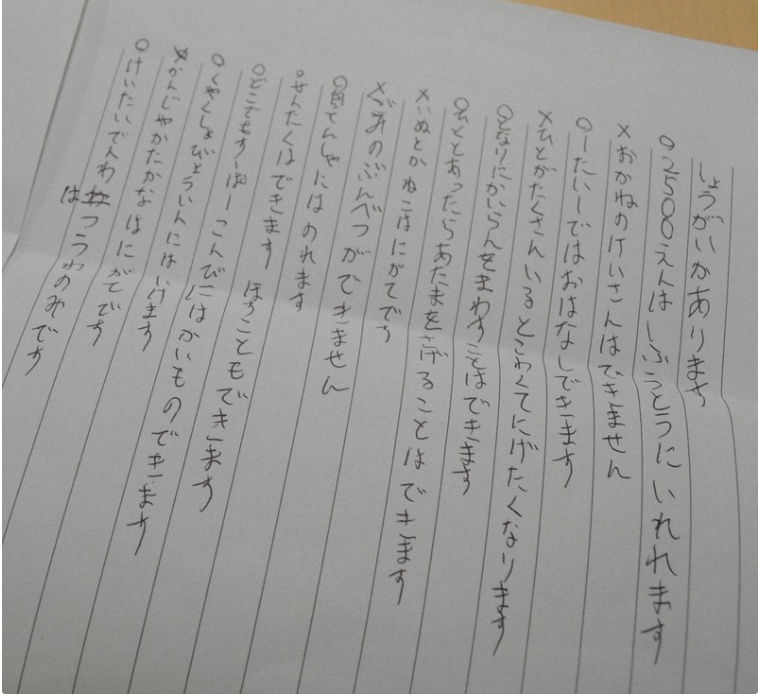 しょうがいかあります
○2500えんはしふうとうにいれれます
×おかねのけいさんはできません
○一たい一ではおはなしできます
×ひとがたくさんいるとこわくてにげたくなります
○となりにかいらんをまわすことはできます
○ひととあったらあたまをさげることはできます
×いぬとかねこはにがてです
×ごみのぶんべつができません
○自てんしゃにはのれます
○せんたくはできます ほすこともできます
○どこでもすーぱーこんびにはかいものできます
○くやくしょびょういんにはいけます
×かんじやかたかなはにがてです
○けいたいでんわはつうわのみです